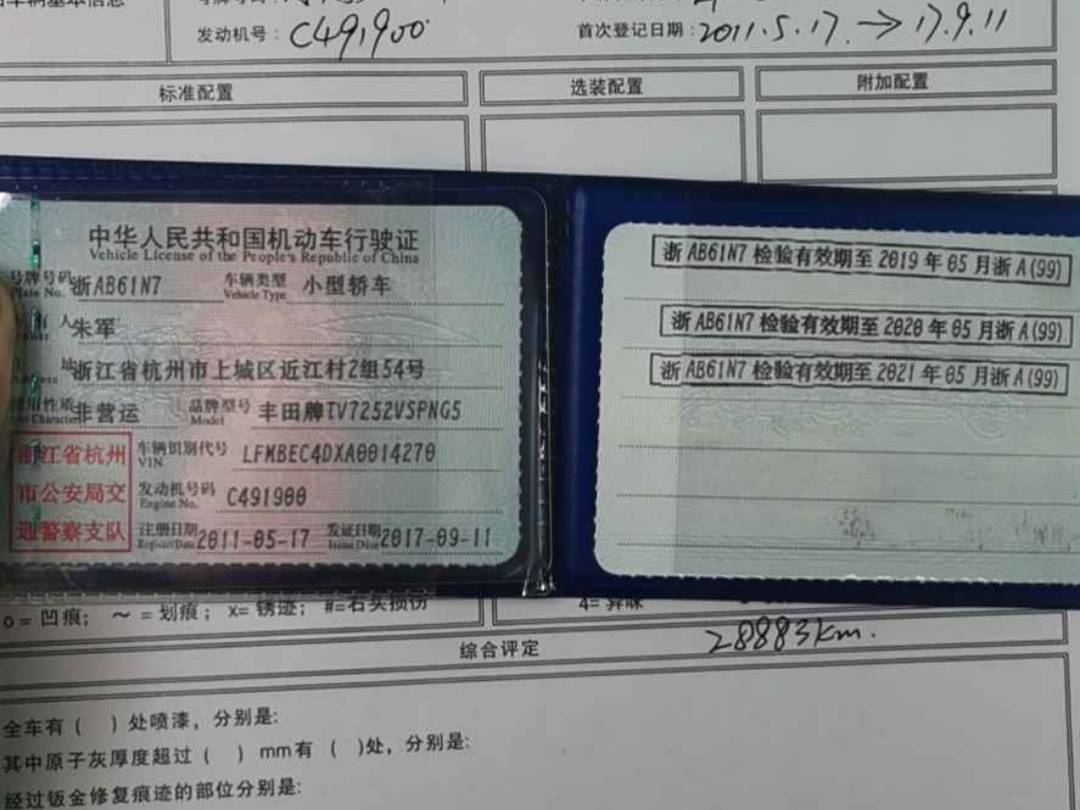 车辆基本信息
发动机号：C491900
首次登记日期：2011.5.17. → 17.9.11
标准配置 选装配置 附加配置
中华人民共和国机动车行驶证
Vehicle License of the People's Republic of China
号牌号码 浙AB61N7 车辆类型 小型轿车
Plate No. Vehicle Type
人 朱军
址 浙江省杭州市上城区近江村2组54号
使用性质 非营运 品牌型号 丰田牌TV7252VSPNG5
Use Character Model
浙江省杭州
市公安局交
通警察支队
车辆识别代号 LFMBEC4DXA0014270
VIN
发动机号码 C491900
Engine No.
注册日期 2011-05-17 发证日期 2017-09-11
Register Date Issue Date
浙AB61N7 检验有效期至 2019 年 05 月浙A(99)
浙AB61N7 检验有效期至 2020 年 05 月浙A(99)
浙AB61N7 检验有效期至 2021 年 05 月浙A(99)
o = 凹痕； ～ = 划痕； x= 锈迹； #=石头损伤
4= 异味
综合评定 28883km.
全车有（ ）处喷漆，分别是：
其中原子灰厚度超过（ ）mm有（ ）处，分别是：
经过钣金修复痕迹的部位分别是：